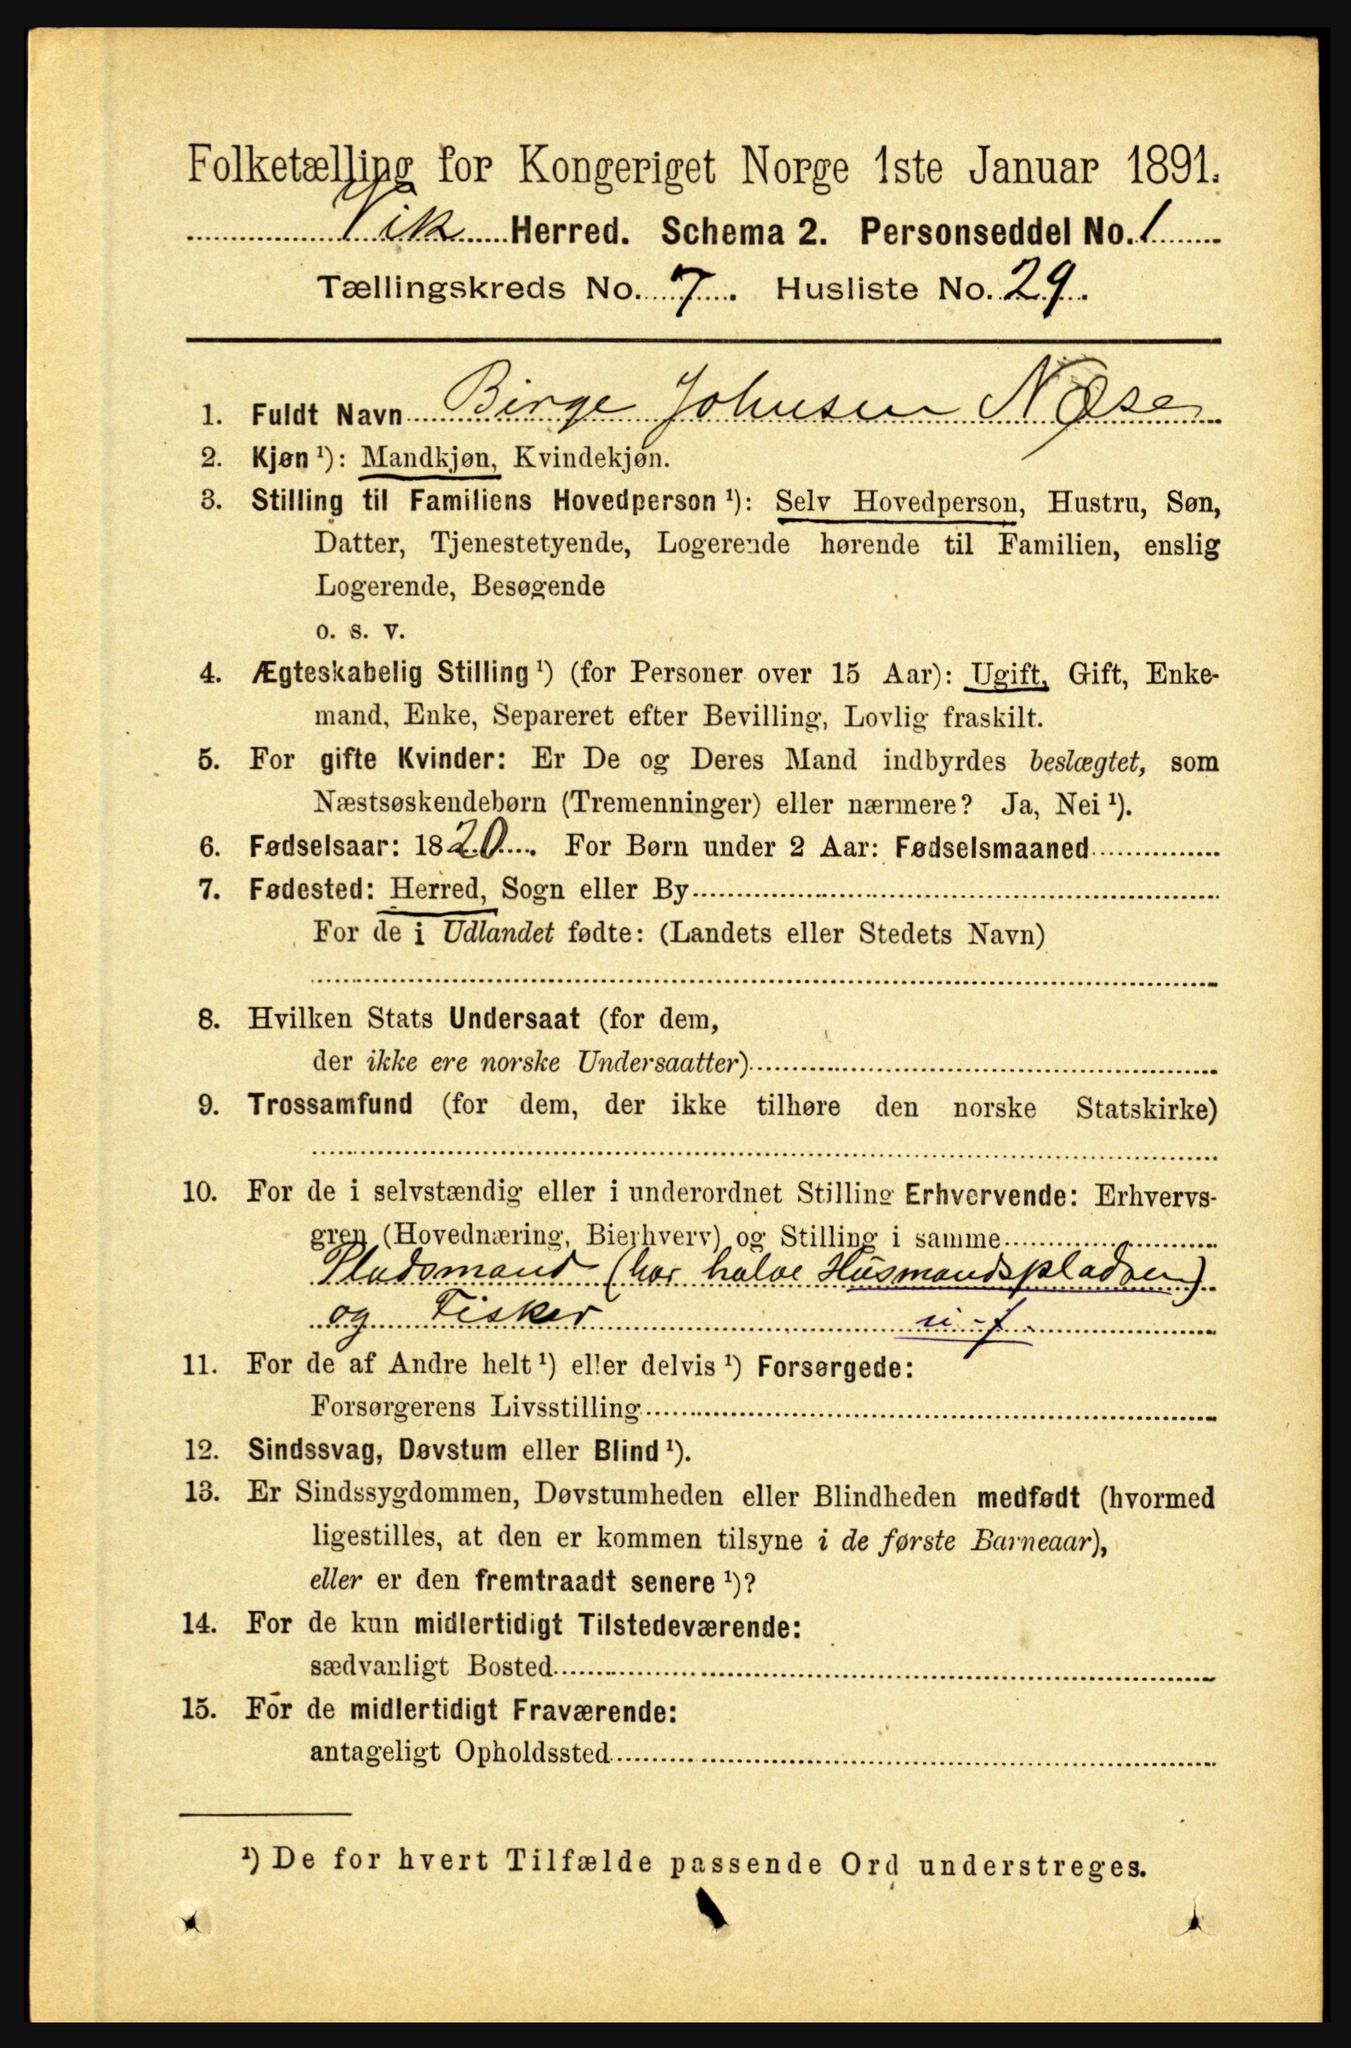 Folketælling for Kongeriget Norge 1ste Januar 1891.
Vik Herred. Schema 2. Personseddel No. 1
Tællingskreds No. 7. Husliste No. 29.
1. Fuldt Navn Birge Johnsen Næse
2. Kjøn ¹): Mandkjøn, Kvindekjøn.
3. Stilling til Familiens Hovedperson ¹): Selv Hovedperson, Hustru, Søn,
Datter, Tjenestetyende, Logerende hørende til Familien, enslig
Logerende, Besøgende
o. s. v.
4. Ægteskabelig Stilling ¹) (for Personer over 15 Aar): Ugift, Gift, Enke-
mand, Enke, Separeret efter Bevilling, Lovlig fraskilt.
5. For gifte Kvinder: Er De og Deres Mand indbyrdes beslægtet, som
Næstsøskendebørn (Tremenninger) eller nærmere? Ja, Nei ¹).
6. Fødselsaar: 1820. For Børn under 2 Aar: Fødselsmaaned
7. Fødested: Herred, Sogn eller By
For de i Udlandet fødte: (Landets eller Stedets Navn)
8. Hvilken Stats Undersaat (for dem,
der ikke ere norske Undersaatter)
9. Trossamfund (for dem, der ikke tilhøre den norske Statskirke)
10. For de i selvstændig eller i underordnet Stilling Erhvervende: Erhvervs-
gren (Hovednæring, Bierhverv) og Stilling i samme
Pladsmand (har halve Husmandspladsen)
og Fisker u-f
11. For de af Andre helt ¹) eller delvis ¹) Forsørgede:
Forsørgerens Livsstilling
12. Sindssvag, Døvstum eller Blind ¹).
13. Er Sindssygdommen, Døvstumheden eller Blindheden medfødt (hvormed
ligestilles, at den er kommen tilsyne i de første Barneaar),
eller er den fremtraadt senere ¹)?
14. For de kun midlertidigt Tilstedeværende:
sædvanligt Bosted
15. For de midlertidigt Fraværende:
antageligt Opholdssted
¹) De for hvert Tilfælde passende Ord understreges.